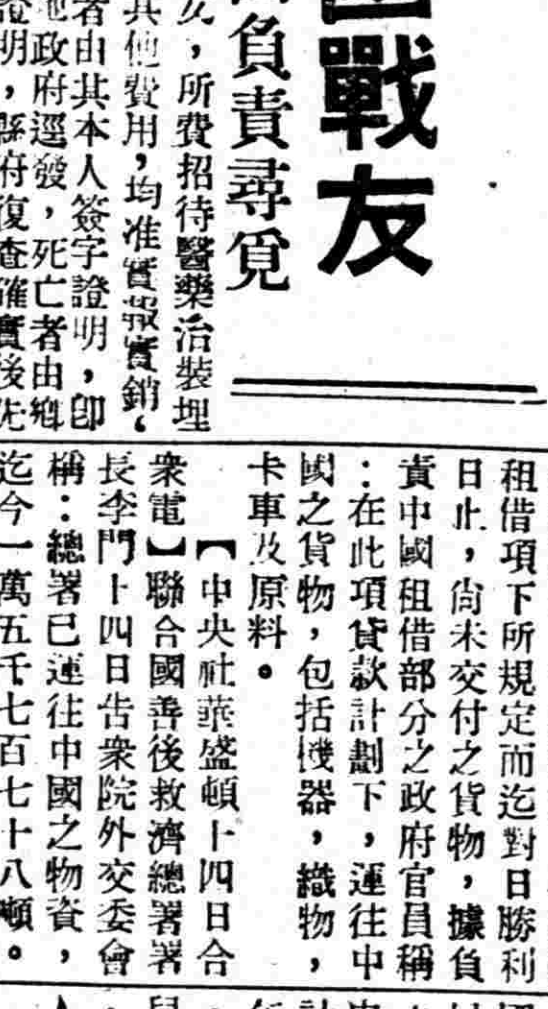 國戰友
負責尋覓
女，所費招待醫藥治裝埋
其他費用，均准實報實銷，
者由其本人簽字證明，卽
地政府逕發，死亡者由鄉
證明，縣府復查確實後先
租借項下所規定而迄對日勝利
日止，尙未交付之貨物，據負
責中國租借部分之政府官員稱
：在此項貸款計劃下，運往中
國之貨物，包括機器，織物，
卡車及原料。
【中央社華盛頓十四日合
衆電】聯合國善後救濟總署署
長李門十四日告衆院外交委會
稱：總署已運往中國之物資，
迄今一萬五千七百七十八噸。